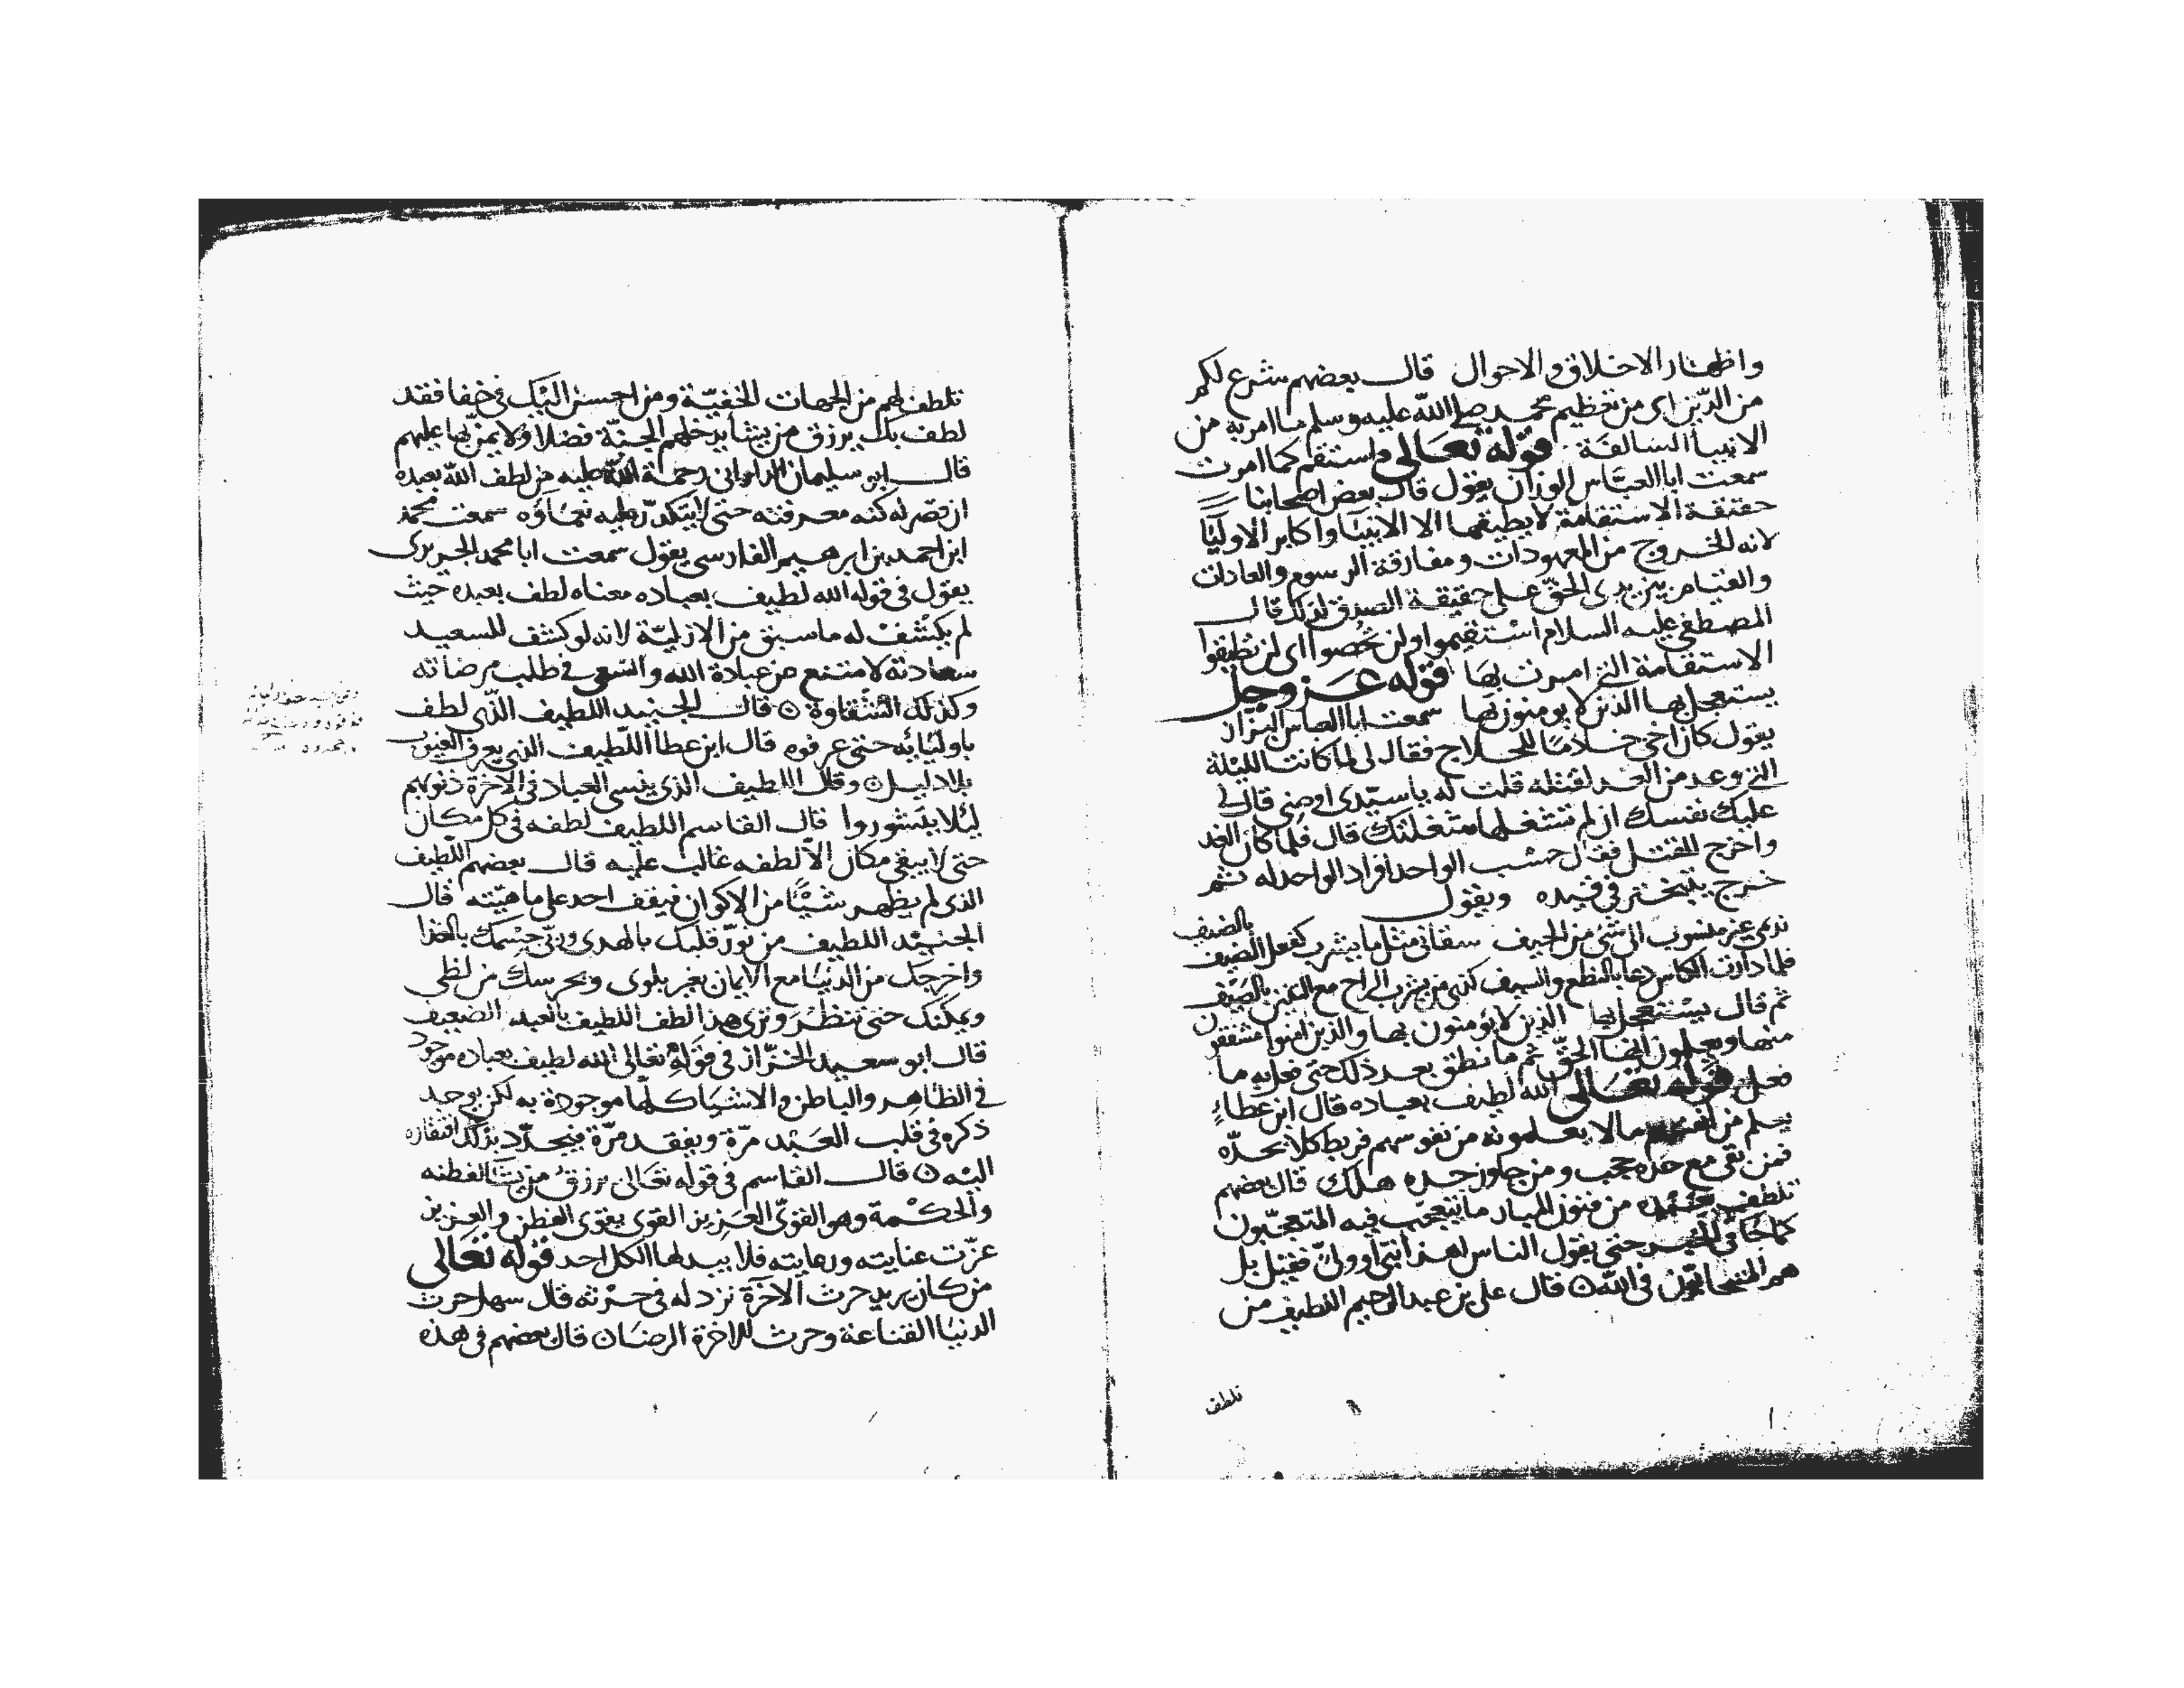 واظهار الاخلاق والاحوال قال بعضهم شرع لكم
من الدين اى من تعظيم محمد صلى الله عليه وسلم ما امر به من
الانبيا السالفة قوله تعالى واستقم كما امرت
سمعت ابا العباس الوزان يقول قال بعض اصحابنا
حقيقة الاستقامة لا يطيقها الا الانبيا واكابر الاوليا
لانه الخروج من المعهودات ومفارقة الرسوم والعادات
والقيام بين يدى الحق على حقيقة الصدق لذلك قال
المصطفى عليه السلام استقيموا ولن تحصوا اى لن تطيقوا
الاستقامة التى امرت بها قوله عز وجل
يستعجل بها الذين لا يومنون بها سمعت ابا العباس البزاز
يقول كان اخى خادما للحلاج فقال لى لما كانت الليلة
التى وعد من الغد لقتله قلت له يا سيدى اوصنى قال لى
عليك نفسك ان لم تشغلها شغلتك قال فلما كان الغد
واخرج للقتل فقال حسب الواحد افراد الواحد له ثم
خرج يتبختر فى قيده ويقول
نديمى غير منسوب الى شئ من الحيف سقانى مثل ما يشرب كفعل الضيف بالضيف
فلما دارت الكاس دعا بالنطع والسيف كذى من يشرب الراح مع التنين بالصيف
ثم قال يستعجل بها الذين لا يؤمنون بها والذين امنوا مشفقون
منها ويعلمون انها الحق ثم ما نطق بعد ذلك حتى فعل به ما
فعل قوله تعالى الله لطيف بعباده قال ابن عطاء
يعلم من انفسهم ما لا يعلمونه من نفوسهم فربط كلا بحده
فمن بقى مع حده حجب ومن جاوز حده هلك قال بعضهم
تلطف من فنون المبار ما يتعجب فيه المتعجبون
كما جا فى الخبر حتى يقول الناس لهذا نبى او ولى فقيل بل
هم المتحابون فى الله قال على بن عبد الرحيم اللطيف من
تلطف
تلطف لهم من الجهات الخفية ومن احسن اليك فى خفا فقد
لطف بك يرزق من يشا يدخلهم الجنة فضلا ولا يمن بها عليهم
قال ابو سليمان الدارانى رحمة الله عليه من لطف الله بعبده
ان قصر له كنه معرفته حتى لا يتكدر عليه نعماؤه سمعت محمد
ابن احمد بن ابرهيم الفارسى يقول سمعت ابا محمد الجريرى
يقول فى قوله الله لطيف بعباده معناه لطف بعبده حيث
لم يكشف له ما سبق من الازلية لانه لو كشف للسعيد
سعادته لامتنع من عبادة الله والسعى فى طلب مرضاته
وكذلك الشقاوة قال الجنيد اللطيف الذى لطف
باوليائه حتى عرفوه قال ابن عطا اللطيف الذى يعرف العيوب
بلا دليل وقال اللطيف الذى ينسى العباد فى الاخرة ذنوبهم
ليلا يتشوروا قال القاسم اللطيف لطفه فى كل مكان
حتى لا يبقى مكان الا لطفه غالب عليه قال بعضهم اللطيف
الذى لم يظهر شيئا من الاكوان فيقف احد على ماهيته قال
الجنيد اللطيف من نور قلبك بالهدى وربى جسمك بالغذا
واخرجك من الدنيا مع الايمان بغير بلوى ويحرسك من لظى
ويمكنك حتى تنظر وترى هذا لطف اللطيف بالعبد الضعيف
قال ابو سعيد الخراز فى قوله تعالى الله لطيف بعباده موجود
فى الظاهر والباطن والاشيا كلها موجودة به لكن يوجد
ذكره فى قلب العبد مرة ويفقد مرة فيتجدد بذلك افتقاره
اليه قال القاسم فى قوله تعالى يرزق من يشا الفطنه
والحكمة وهو القوى العزيز القوى يقوى الفطن والعزيز
عزت عنايته ورعايته فلا يبدلها الكل احد قوله تعالى
من كان يريد حرث الاخرة نزد له فى حرثه قال سهل حرث
الدنيا القناعة وحرث للاخرة الرضان قال بعضهم فى هذه